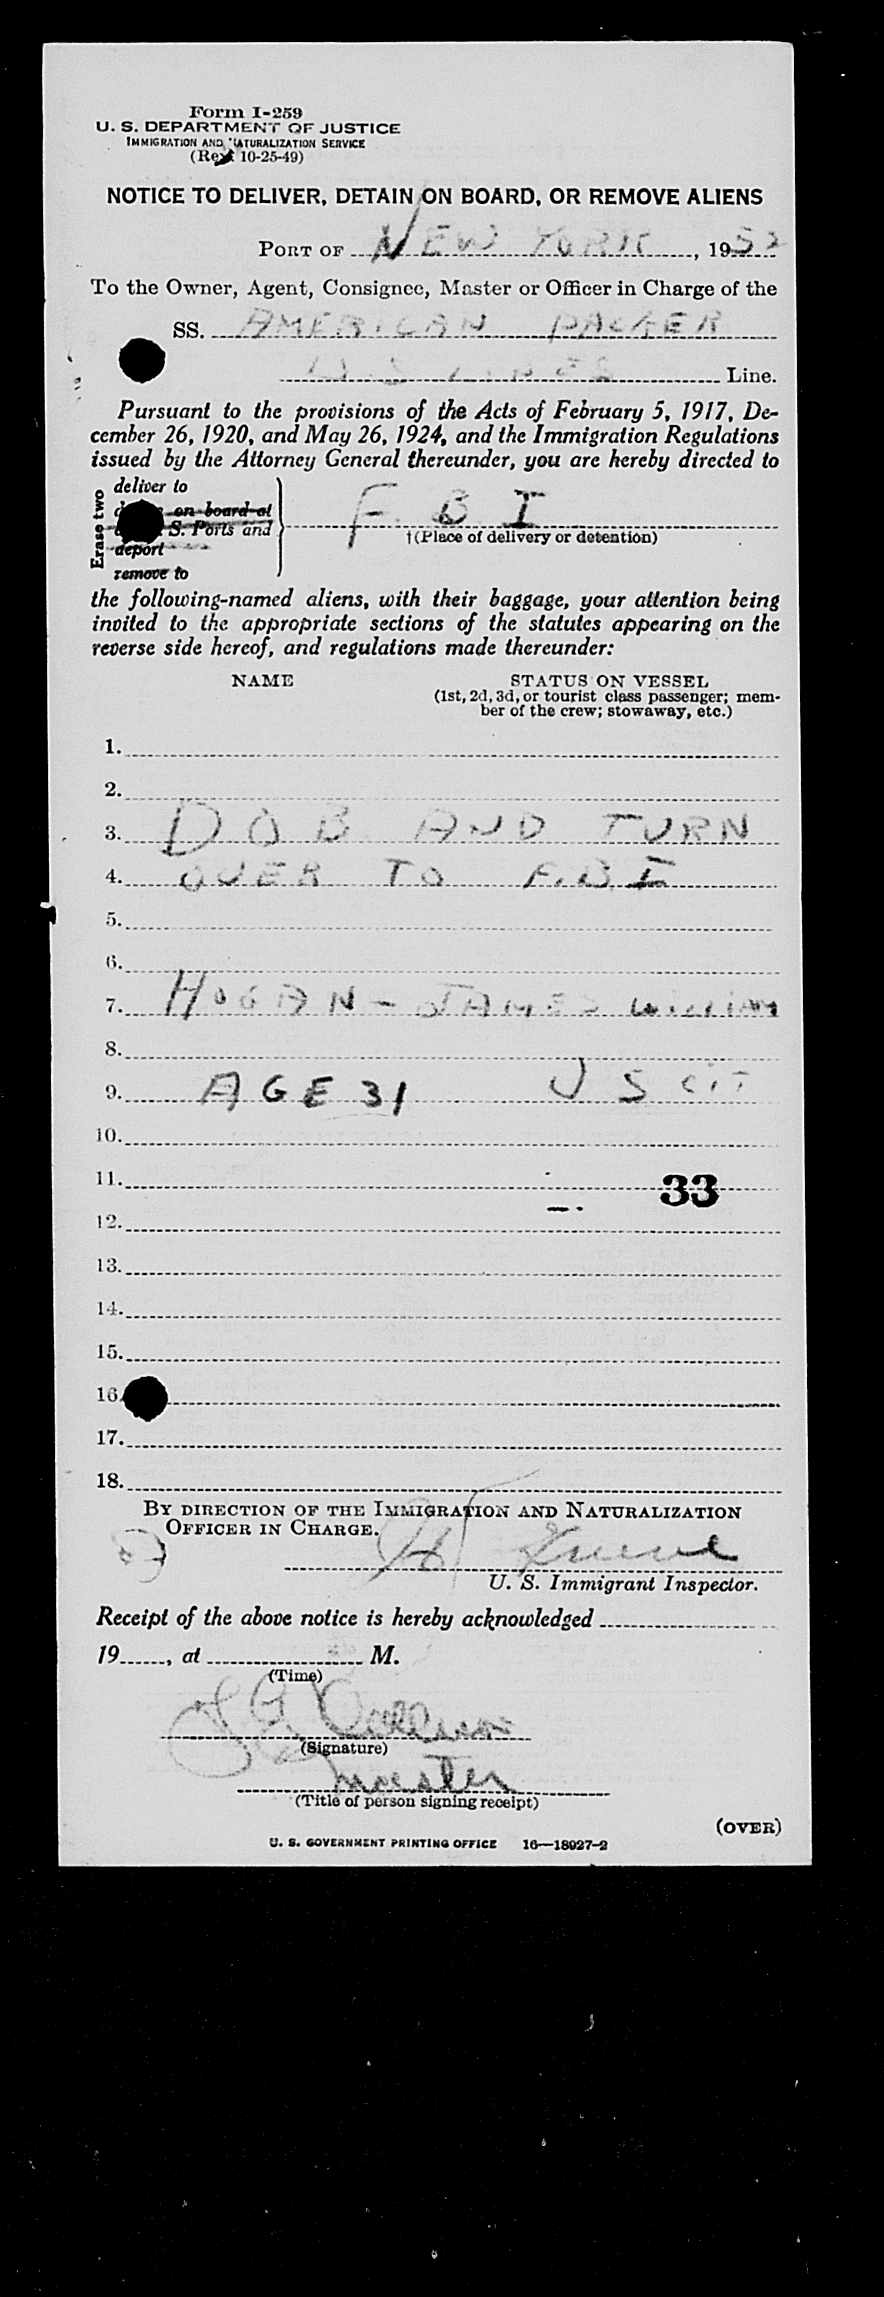 Form I-259
U. S. DEPARTMENT OF JUSTICE
IMMIGRATION AND NATURALIZATION SERVICE
(Rev. 10-25-49)
NOTICE TO DELIVER, DETAIN ON BOARD, OR REMOVE ALIENS
PORT OF NEW YORK, 1952
To the Owner, Agent, Consignee, Master or Officer in Charge of the
SS. AMERICAN PACKER
U S LINES Line.
Pursuant to the provisions of the Acts of February 5, 1917, De-
cember 26, 1920, and May 26, 1924, and the Immigration Regulations
issued by the Attorney General thereunder, you are hereby directed to
Erase two
deliver to
on board at
S. Ports and
deport
remove to
F. B. I
†(Place of delivery or detention)
the following-named aliens, with their baggage, your attention being
invited to the appropriate sections of the statutes appearing on the
reverse side hereof, and regulations made thereunder:
NAME STATUS ON VESSEL
(1st, 2d, 3d, or tourist class passenger; mem-
ber of the crew; stowaway, etc.)
1.
2.
3. D O B AND TURN
4. OVER TO F.B.I
5.
6.
7. HOGAN - JAMES WILLIAM
8.
9. AGE 31 U S CIT
10.
11. 33
12.
13.
14.
15.
16.
17.
18.
BY DIRECTION OF THE IMMIGRATION AND NATURALIZATION
OFFICER IN CHARGE.
U. S. Immigrant Inspector.
Receipt of the above notice is hereby acknowledged
19, at M.
(Time)
(Signature)
master
(Title of person signing receipt)
(OVER)
U. S. GOVERNMENT PRINTING OFFICE 16—18927-2